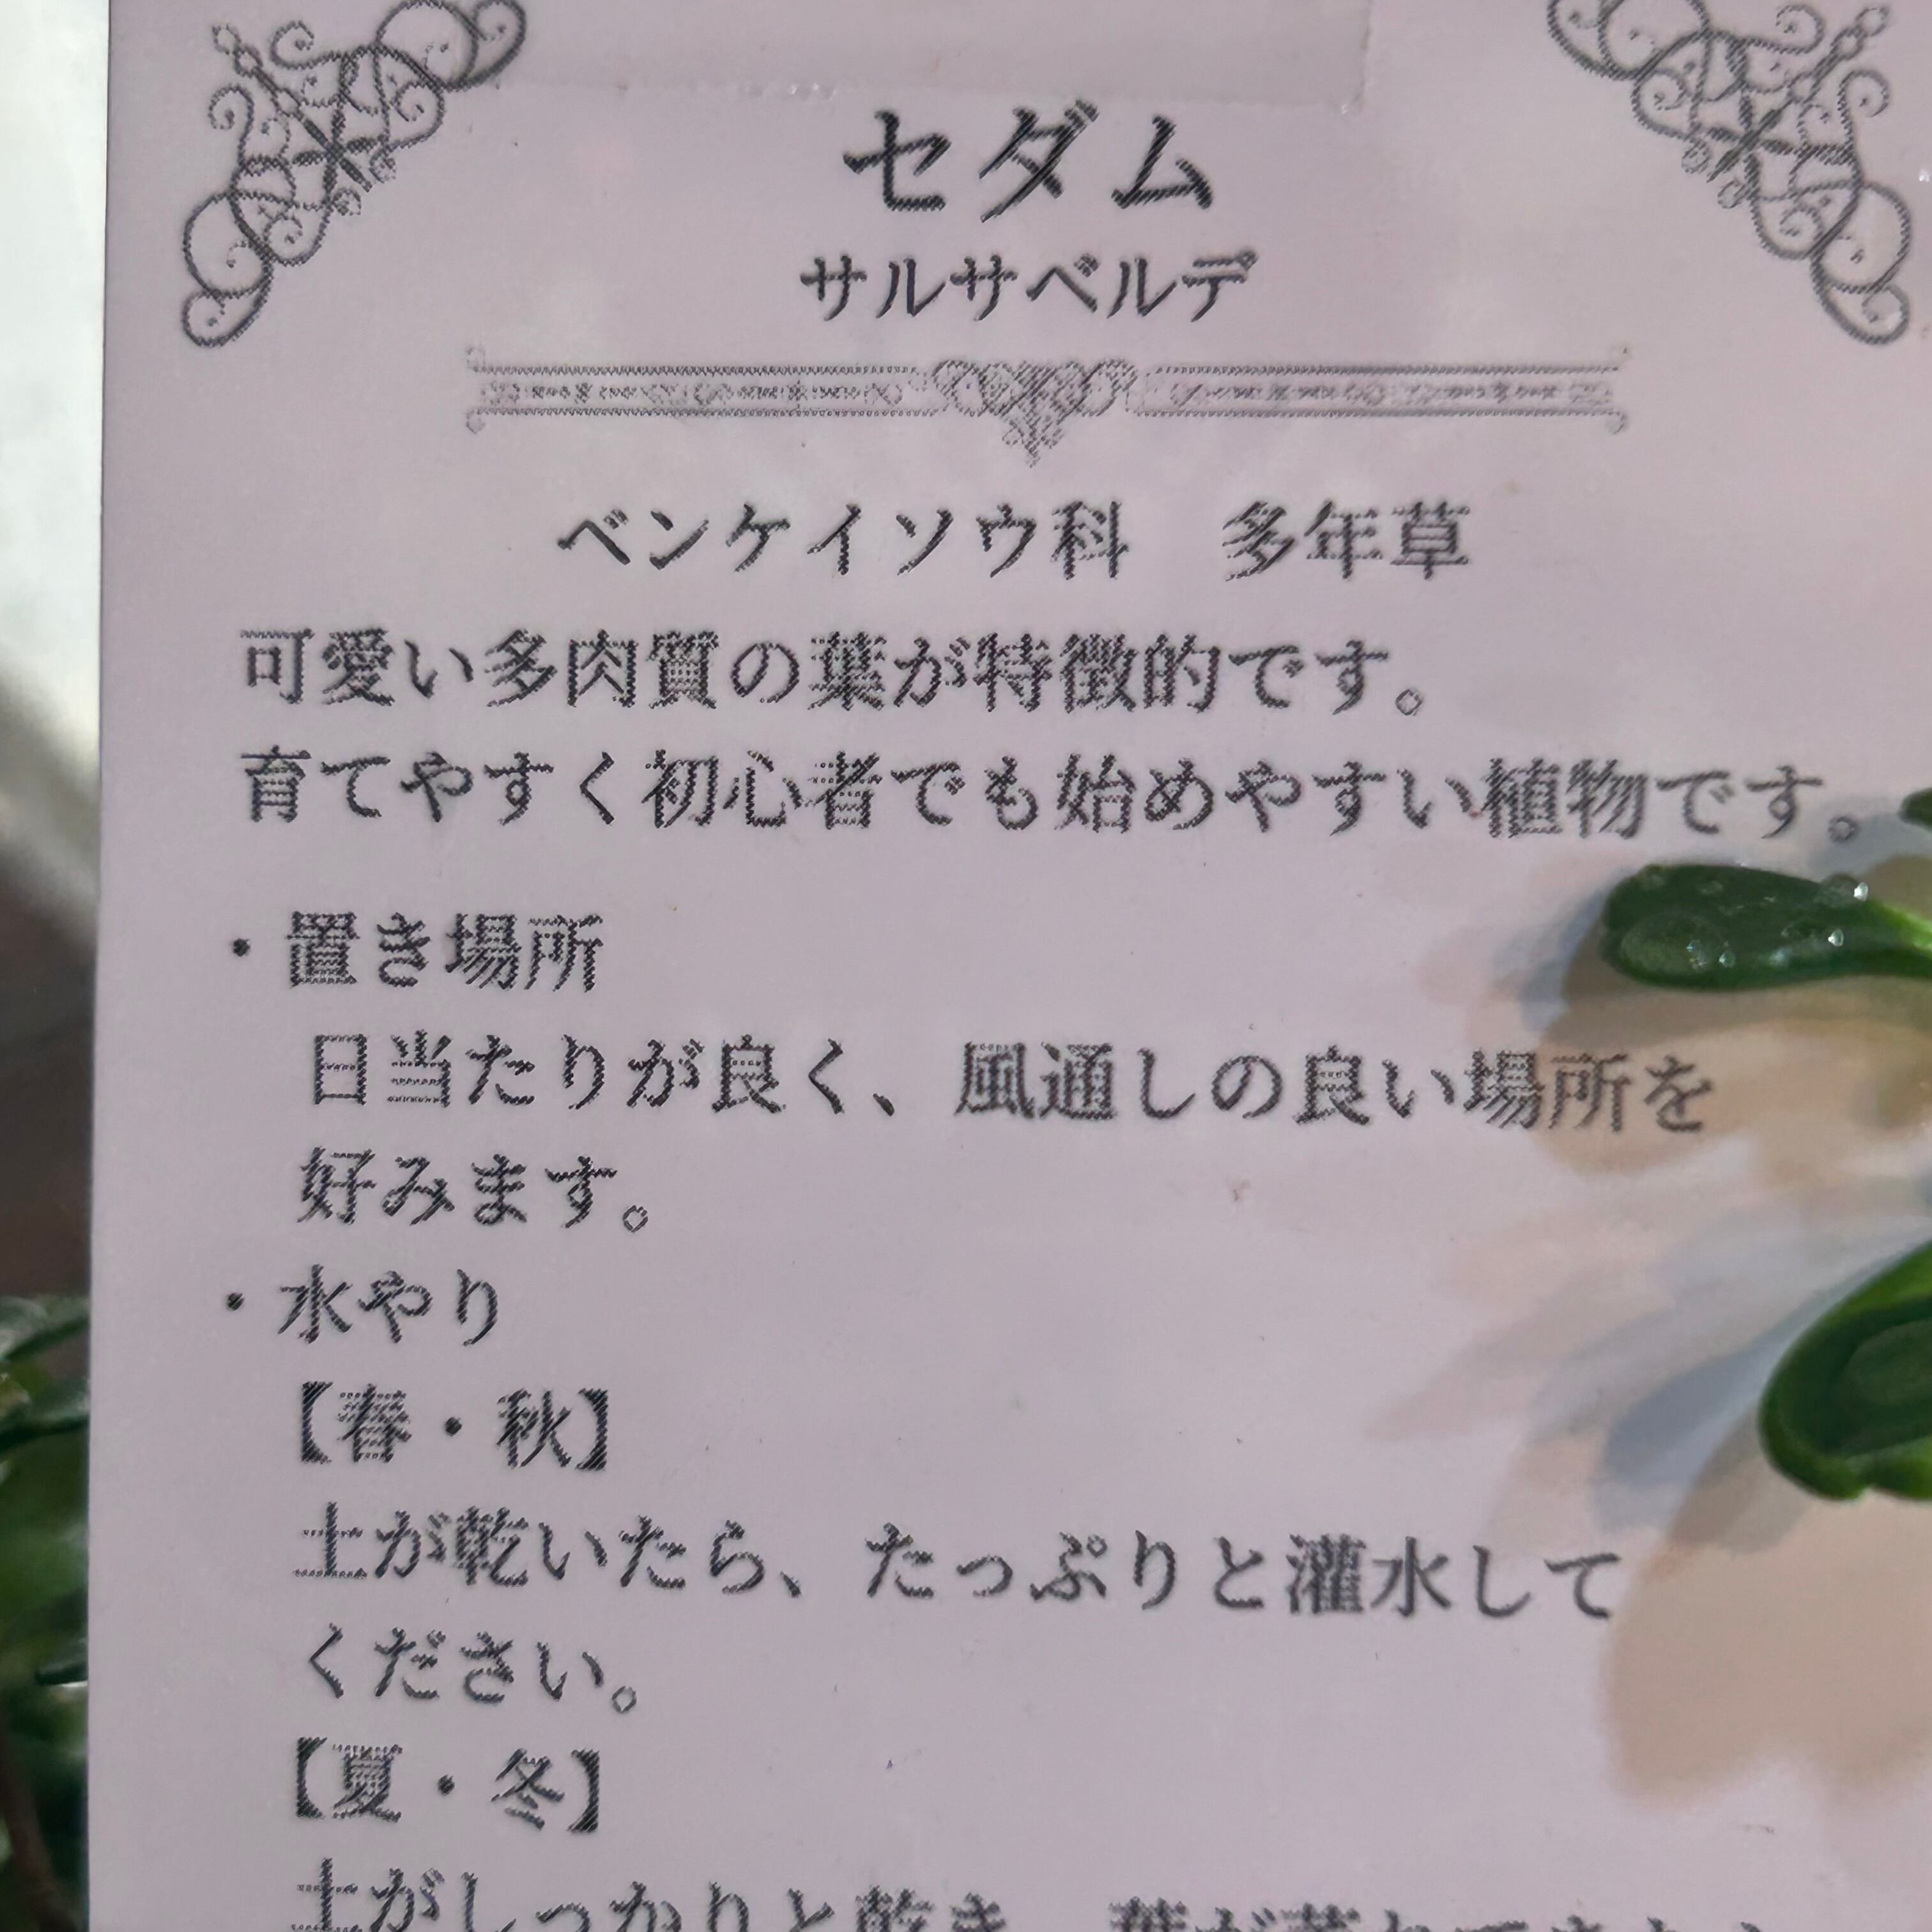 セダム
サルサベルデ
ベンケイソウ科　多年草
可愛い多肉質の葉が特徴的です。
育てやすく初心者でも始めやすい植物です。
・置き場所
日当たりが良く、風通しの良い場所を
好みます。
・水やり
【春・秋】
土が乾いたら、たっぷりと灌水して
ください。
【夏・冬】
土がしっかりと乾き、葉が